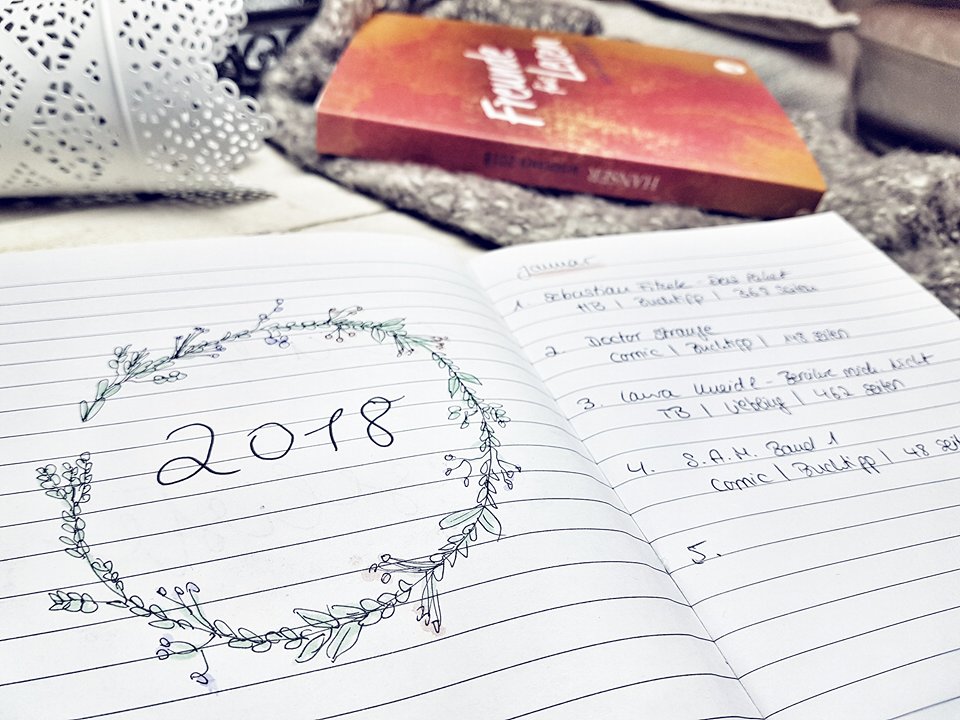 Freunde
fürs Lesen
HANSER
2018
Januar
1. Sebastian Fitzek - Das Paket
HB | Buchtipp | 368 Seiten
2. Doctor Strange
Comic | Buchtipp | 148 Seiten
3. Laura Kneidl - Berühre mich. Nicht
TB | Liebling | 462 Seiten
4. S.A.M. Band 1
Comic | Buchtipp | 48
5.